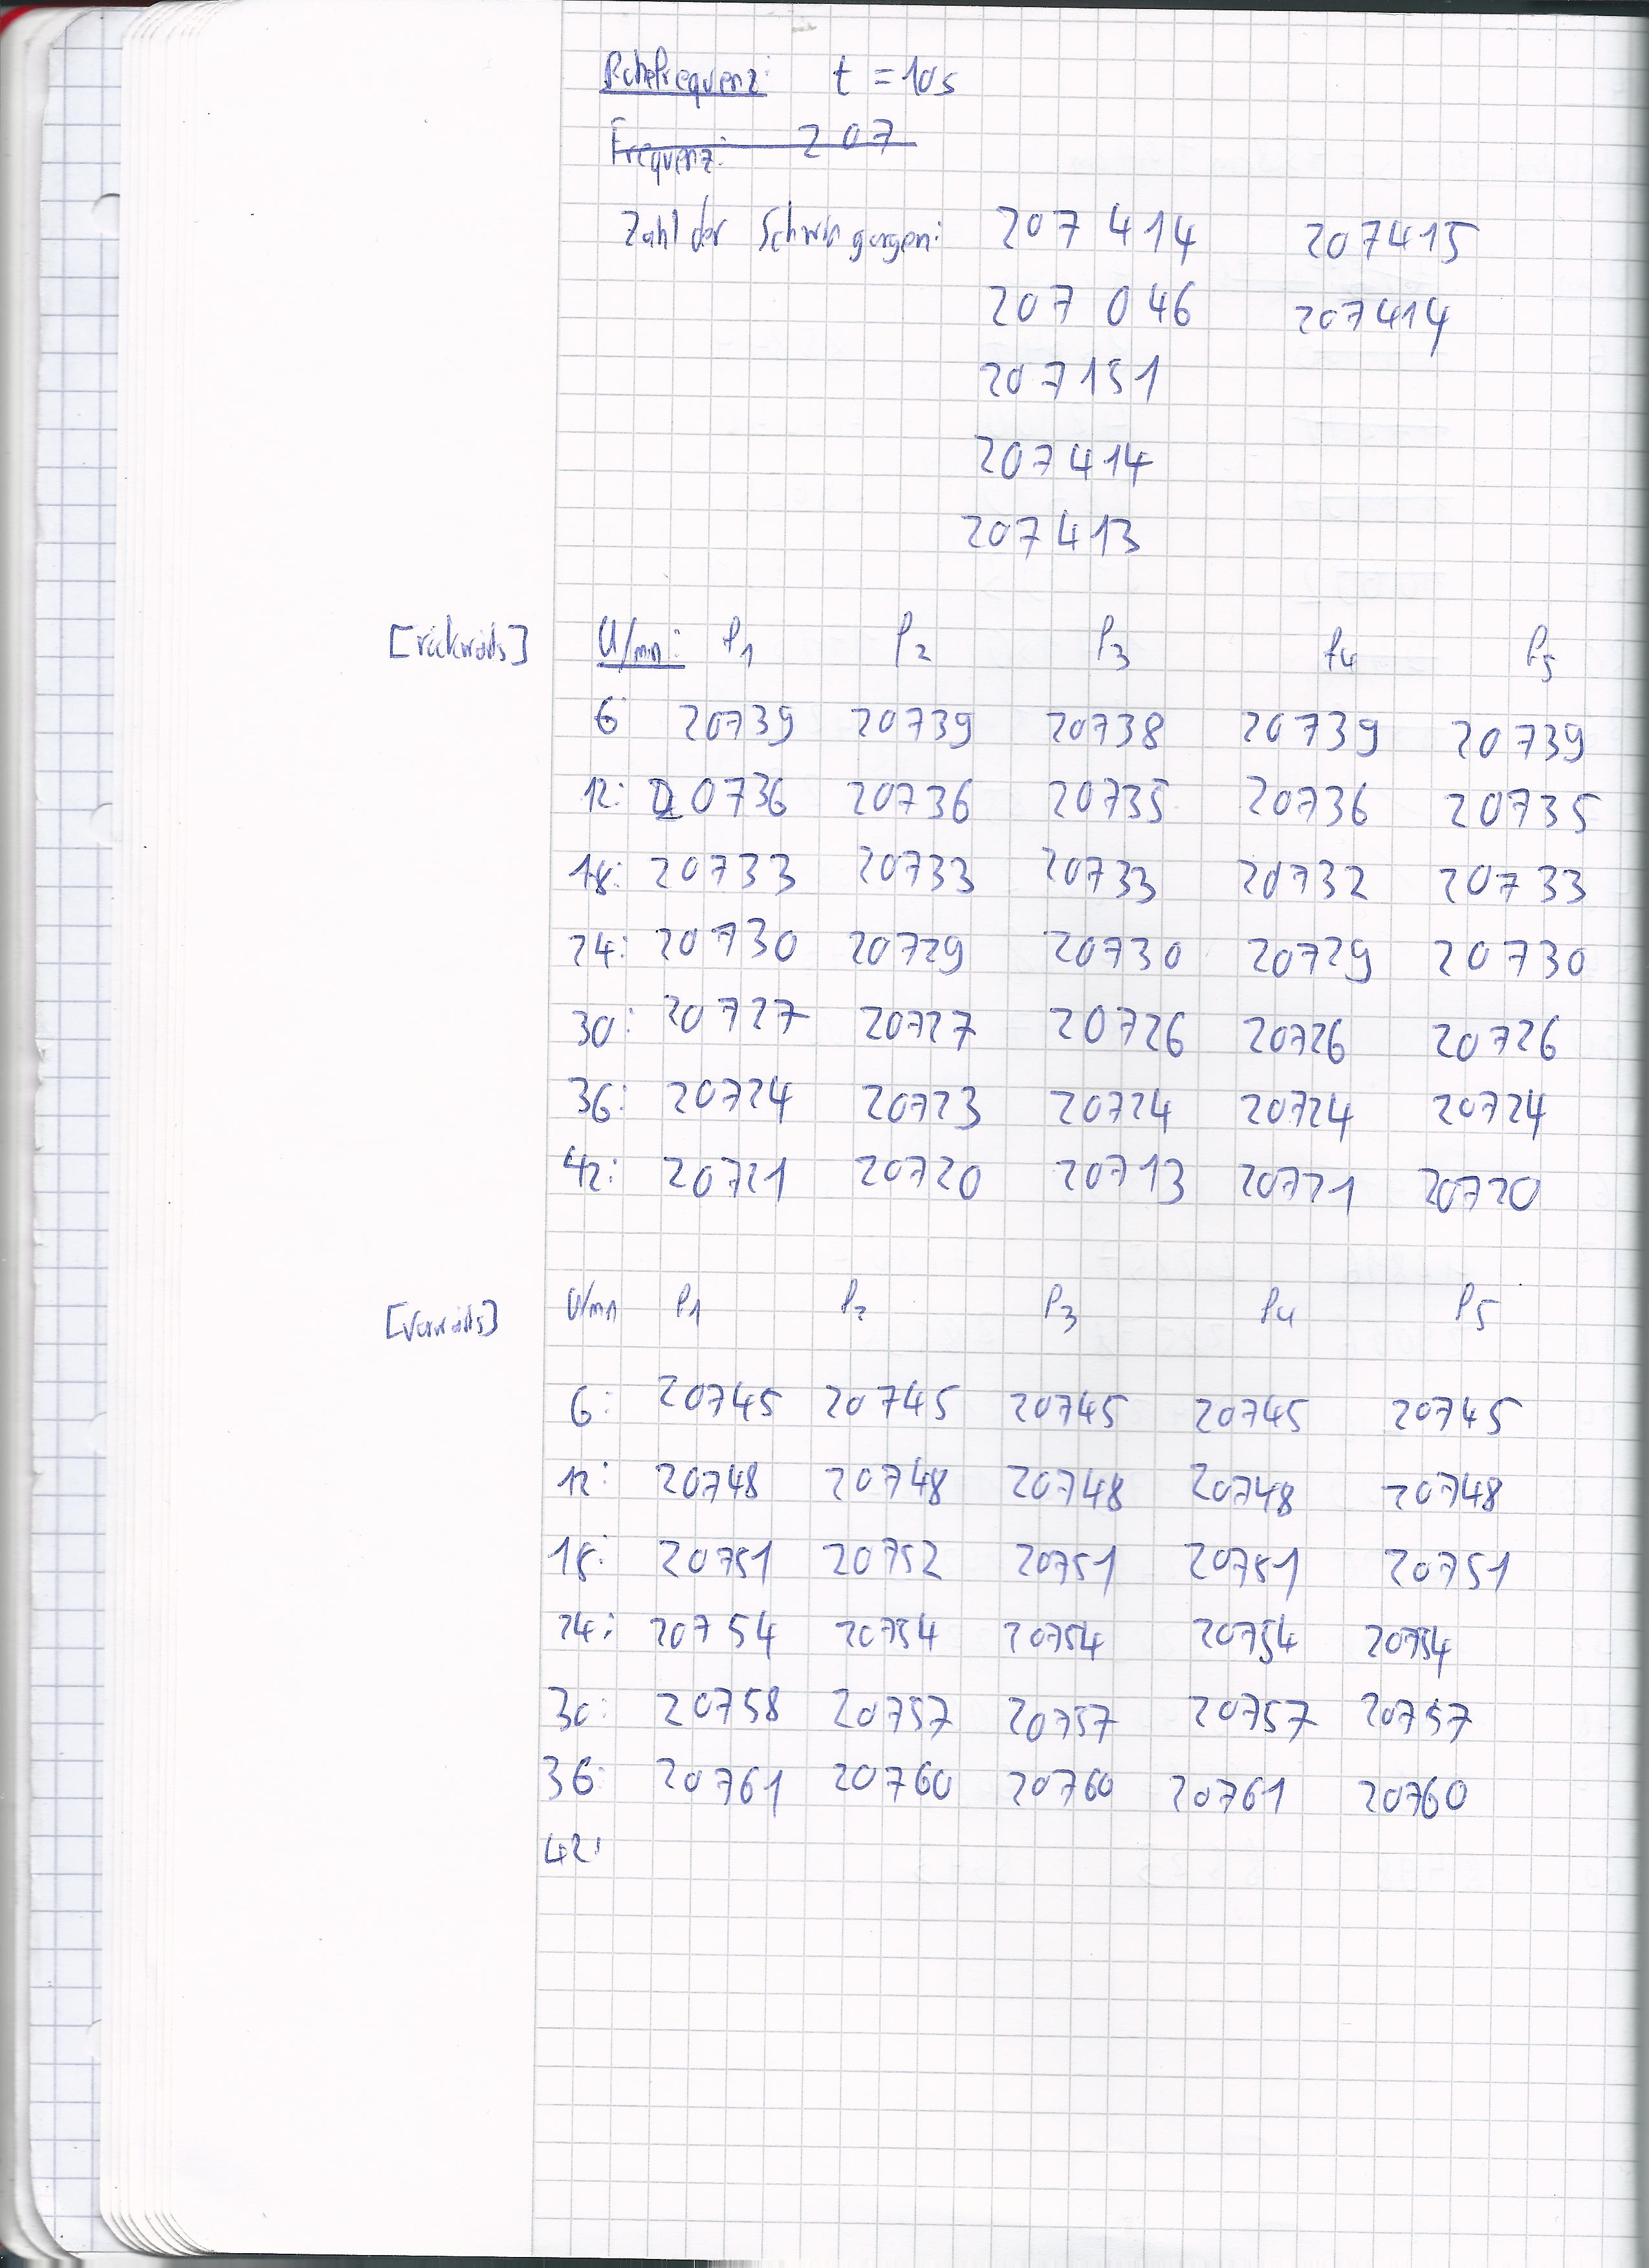 Ruhefrequenz: t = 10s
Frequenz: 207
Zahl der Schwingungen: 207 414 207415
207 046 207414
207151
207414
207413
[rückwärts] U/min: f1 f2 f3 f4 f5
6: 20739 20739 20738 20739 20739
12: 20736 20736 20735 20736 20735
18: 20733 20733 20733 20732 20733
24: 20730 20729 20730 20729 20730
30: 20727 20727 20726 20726 20726
36: 20724 20723 20724 20724 20724
42: 20721 20720 20713 20721 20720
[vorwärts] U/min f1 f2 f3 f4 f5
6: 20745 20745 20745 20745 20745
12: 20748 20748 20748 20748 20748
18: 20751 20752 20751 20751 20751
24: 20754 20754 20754 20754 20754
30: 20758 20757 20757 20757 20757
36: 20761 20760 20760 20761 20760
42: